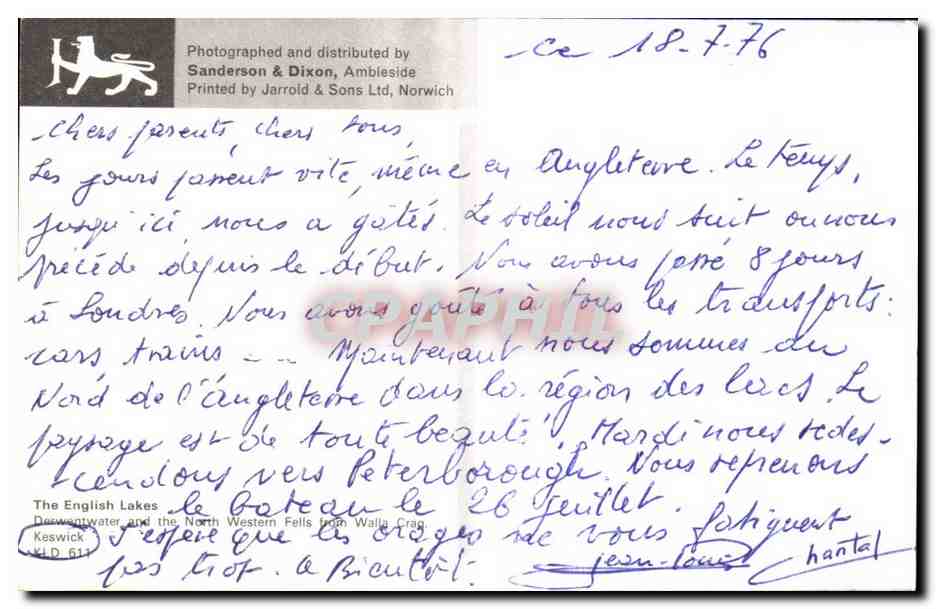 Photographed and distributed by
Sanderson & Dixon, Ambleside
Printed by Jarrold & Sons Ltd, Norwich
Ce 18-7-76
Chers parents, chers tous,
Les jours passent vite, même en Angleterre. Le temps,
jusqu'ici, nous a gâtés. Le soleil nous suit ou nous
précède depuis le début. Nous avons passé 8 jours
à Londres. Nous avons goûté à tous les transports :
cars, trains ... Maintenant nous sommes au
Nord de l'Angleterre dans la région des lacs. Le
paysage est de toute beauté. Mardi nous redes-
cendons vers Peterborough. Nous reprenons
le bateau le 26 juillet.
The English Lakes
Derwentwater and the North Western Fells from Walla Crag,
Keswick
KLD 611
J'espère que les orages ne vous fatiguent
pas trop. A Bientôt.
Jean-Louis Chantal
CPAPHIL